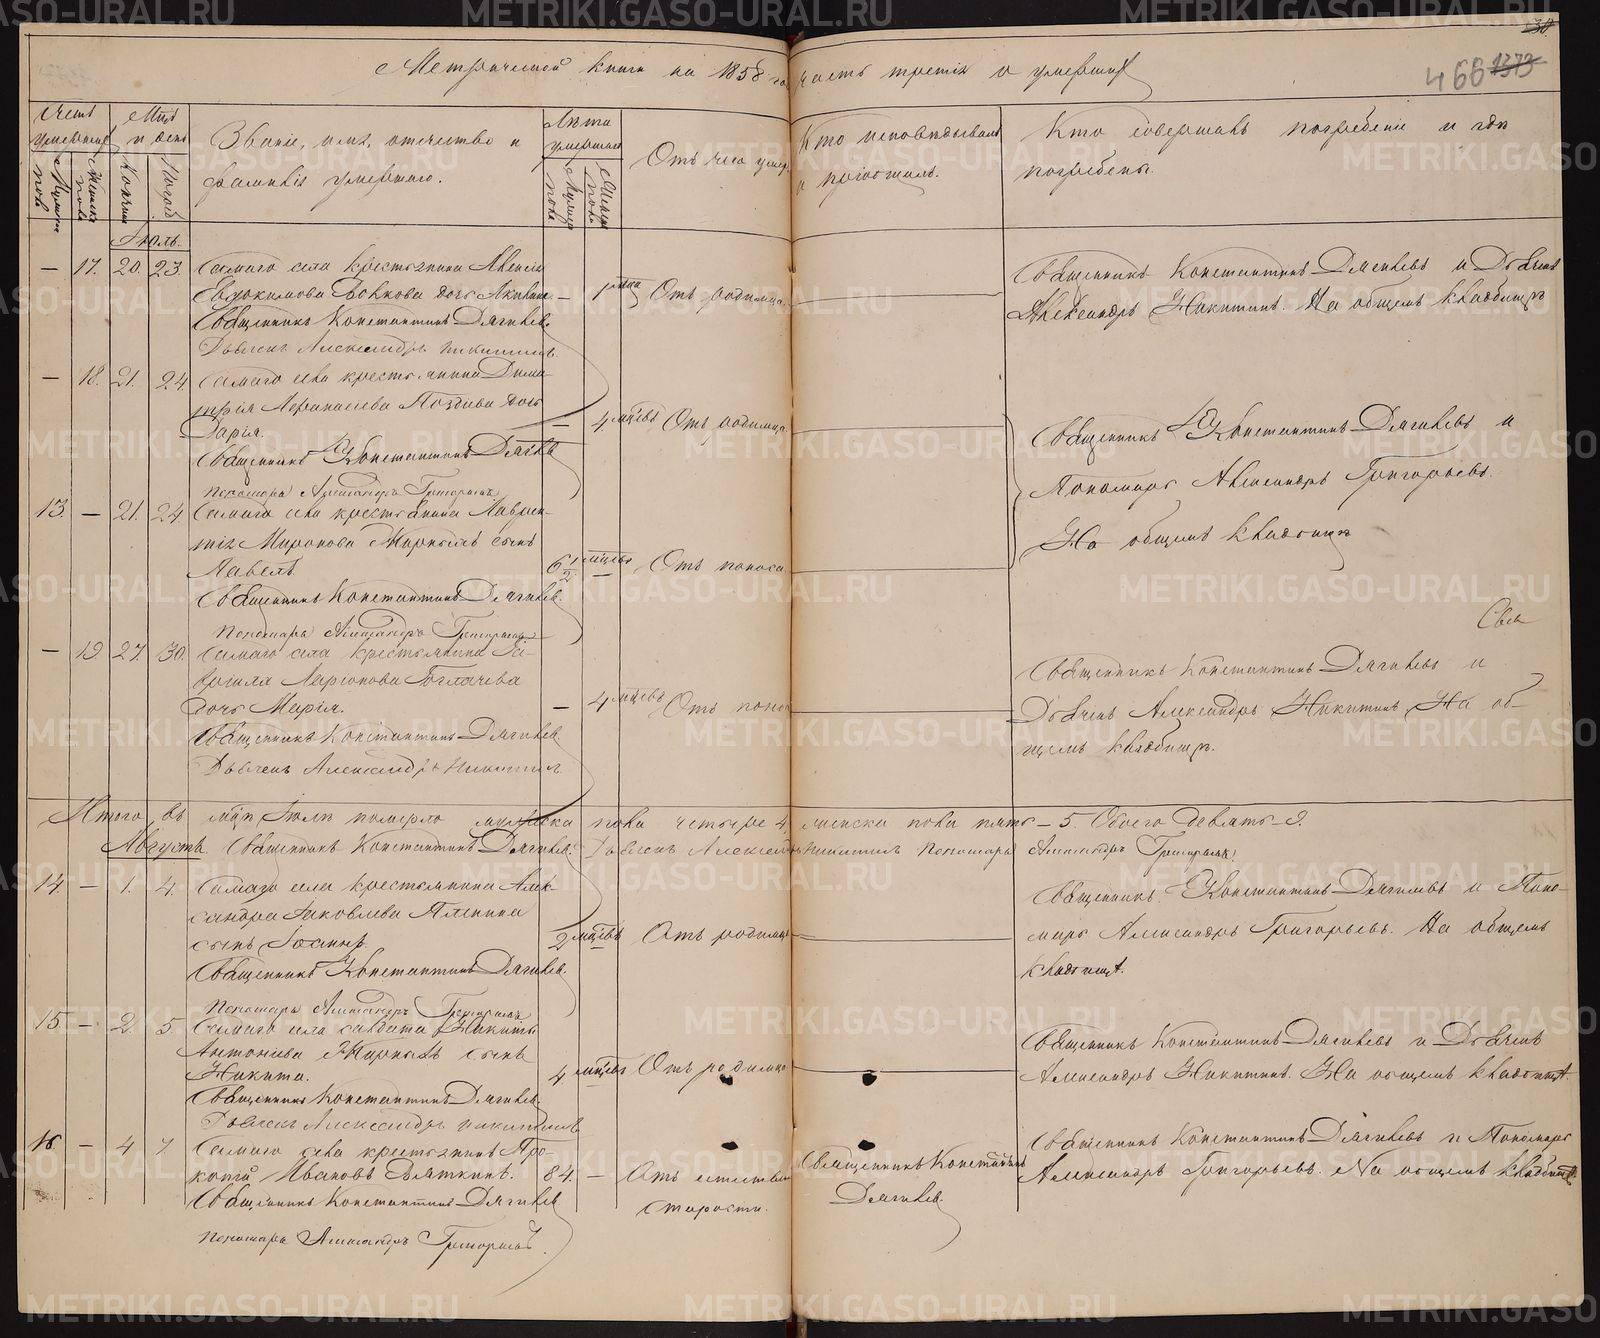 30
466 1373
Метрической книги на 1858 год часть третія о умершихъ
Счетъ умершихъ
Мужеска пола
Женска пола
Мѣсяцъ и день
Кончины
Погреб.
Званіе, имя, отчество и
фамилія умершаго.
Лѣта умершаго
Мужеска пола
Женска пола
Отъ чего умеръ
Кто исповѣдывалъ
и пріобщалъ.
Кто совершалъ погребеніе и гдѣ
погребены.
Іюль.
— 17. 20. 23. Самаго села крестьянина Алексія
Евдокимова Волкова дочь Акилина — 1 мца Отъ родимца
Священникъ Константинъ Дягилевъ.
Дьячекъ Александръ Никитинъ.
Священникъ Константинъ Дягилевъ и Дьячекъ
Александръ Никитинъ. На общемъ кладбищѣ
— 18. 21. 24 Самаго села крестьянина Дими-
трія Аѳанасіева Поздѣева дочь
Дарія. — 4 мцевъ Отъ родимца
Священникъ Константинъ Дягилевъ
Пономарь Александръ Григорьевъ
Священникъ Константинъ Дягилевъ и
Пономарь Александръ Григорьевъ.
На общемъ кладбищѣ
13. — 21. 24 Самаго села крестьянина Лаврен-
тія Миронова Жирныхъ сынъ
Павелъ 6 1/2 мцевъ — Отъ поноса
Священникъ Константинъ Дягилевъ.
Пономарь Александръ Григорьевъ
Свя
— 19 27. 30. Самаго села крестьянина Га-
вріила Ларіонова дочь Марія. — 4 мцевъ Отъ поноса
Священникъ Константинъ Дягилевъ
Дьячекъ Александръ Никитинъ.
Священникъ Константинъ Дягилевъ и
Дьячекъ Александръ Никитинъ. На об-
щемъ кладбищѣ.
Итого въ мцѣ Іюлѣ померло мужеска пола четыре 4, женска пола пять – 5. Обоего девять – 9.
Августъ. Священникъ Константинъ Дягилевъ. Дьячекъ Александръ Никитинъ Пономарь Александръ Григорьевъ.
14. — 1. 4. Самаго села крестьянина Алек-
сандра Іаковлева
сынъ Іоаннъ. 2 мцевъ Отъ родимца
Священникъ Константинъ Дягилевъ.
Пономарь Александръ Григорьевъ
Священникъ Константинъ Дягилевъ и Поно-
марь Александръ Григорьевъ. На общемъ
кладбищѣ.
15 — 2. 5. Самаго села солдата Никиты
Антоніева Жирныхъ сынъ
Никита. 4 мцевъ Отъ родимца
Священникъ Константинъ Дягилевъ.
Дьячекъ Александръ Никитинъ
Священникъ Константинъ Дягилевъ и Дьячекъ
Александръ Никитинъ. На общемъ кладбищѣ.
16. — 4 7. Самаго села крестьянинъ Про-
копій Ивановъ Вяткинъ. 84. — Отъ естествен
старости.
Священникъ Константинъ Дягилевъ
Пономарь Александръ Григорьевъ.
Священникъ Константинъ
Дягилевъ.
Священникъ Константинъ Дягилевъ и Пономарь
Александръ Григорьевъ. На общемъ кладбищѣ
METRIKI.GASO-URAL.RU